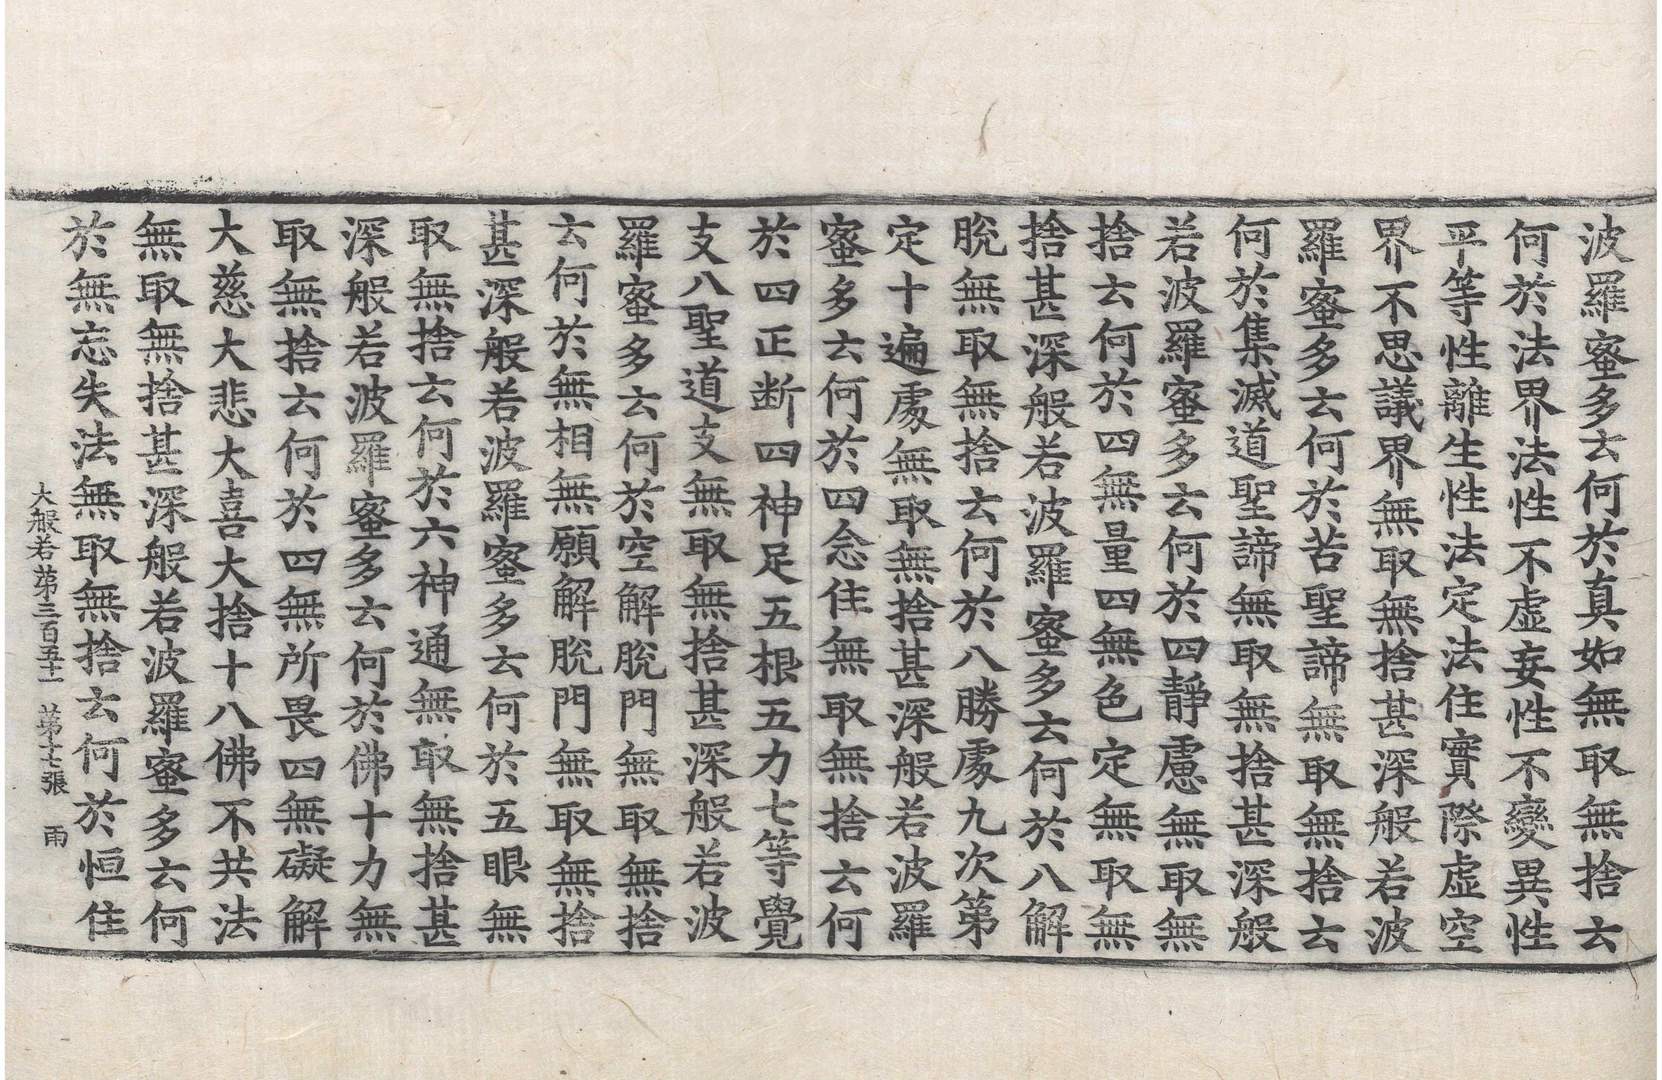 波羅蜜多云何於真如無取無捨云
何於法界法性不虛妄性不變異性
平等性離生性法定法住實際虛空
界不思議界無取無捨甚深般若波
羅蜜多云何於苦聖諦無取無捨云
何於集滅道聖諦無取無捨甚深般
若波羅蜜多云何於四靜慮無取無
捨云何於四無量四無色定無取無
捨甚深般若波羅蜜多云何於八解
脫無取無捨云何於八勝處九次第
定十遍處無取無捨甚深般若波羅
蜜多云何於四念住無取無捨云何
於四正断四神足五根五力七等覺
支八聖道支無取無捨甚深般若波
羅蜜多云何於空解脫門無取無捨
云何於無相無願解脫門無取無捨
甚深般若波羅蜜多云何於五眼無
取無捨云何於六神通無取無捨甚
深般若波羅蜜多云何於佛十力無
取無捨云何於四無所畏四無礙解
大慈大悲大喜大捨十八佛不共法
無取無捨甚深般若波羅蜜多云何
於無忘失法無取無捨云何於恒住
大般若第三百五十一 第十七張 雨